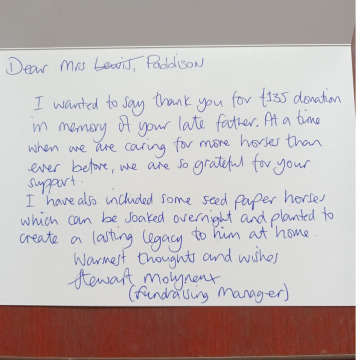 Dear Mrs Lewis, Paddison
I wanted to say thank you for £135 donation
in memory of your late father. At a time
when we are caring for more horses than
ever before, we are so grateful for your
support.
I have also included some seed paper horses
which can be soaked overnight and planted to
create a lasting legacy to him at home.
Warmest thoughts and wishes
Stewart Molyneux
(Fundraising Manager)